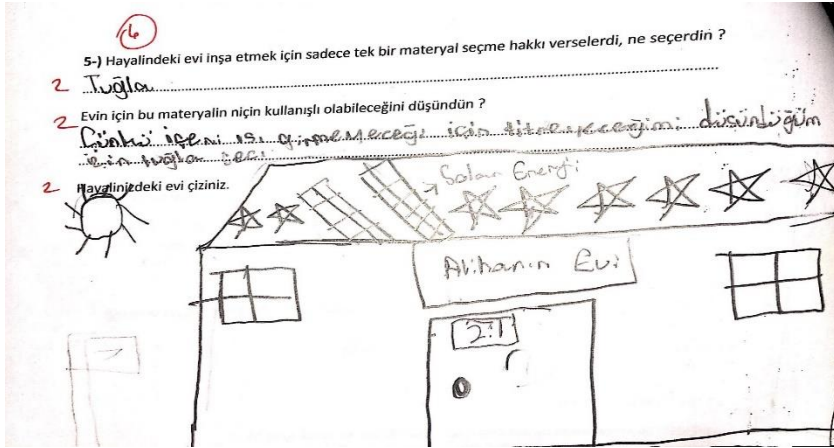 6
5-) Hayalindeki evi inşa etmek için sadece tek bir materyal seçme hakkı verselerdi, ne seçerdin ?
2 Tuğla
Evin için bu materyalin niçin kullanışlı olabileceğini düşündün ?
2 Çünkü içeri ısı girmemeceği için titreyeceğimi düşündüğüm
için tuğla
2 Hayalinizdeki evi çiziniz.
Solar Energi
Alihanın Evi
2.1